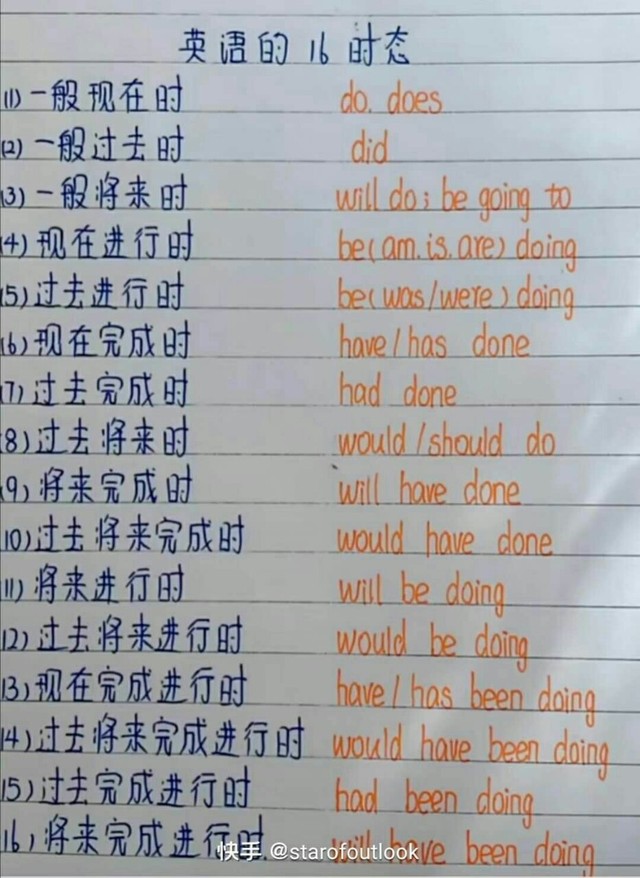 英语的16时态
(1)一般现在时 do. does
(2)一般过去时 did
(3)一般将来时 will do; be going to
(4)现在进行时 be(am.is.are)doing
(5)过去进行时 be(was/were)doing
(6)现在完成时 have/has done
(7)过去完成时 had done
(8)过去将来时 would/should do
(9)将来完成时 will have done
10)过去将来完成时 would have done
11)将来进行时 will be doing
12)过去将来进行时 would be doing
13)现在完成进行时 have/has been doing
14)过去将来完成进行时 would have been doing
15)过去完成进行时 had been doing
16)将来完成进行时 will have been doing
快手 @starofoutlook